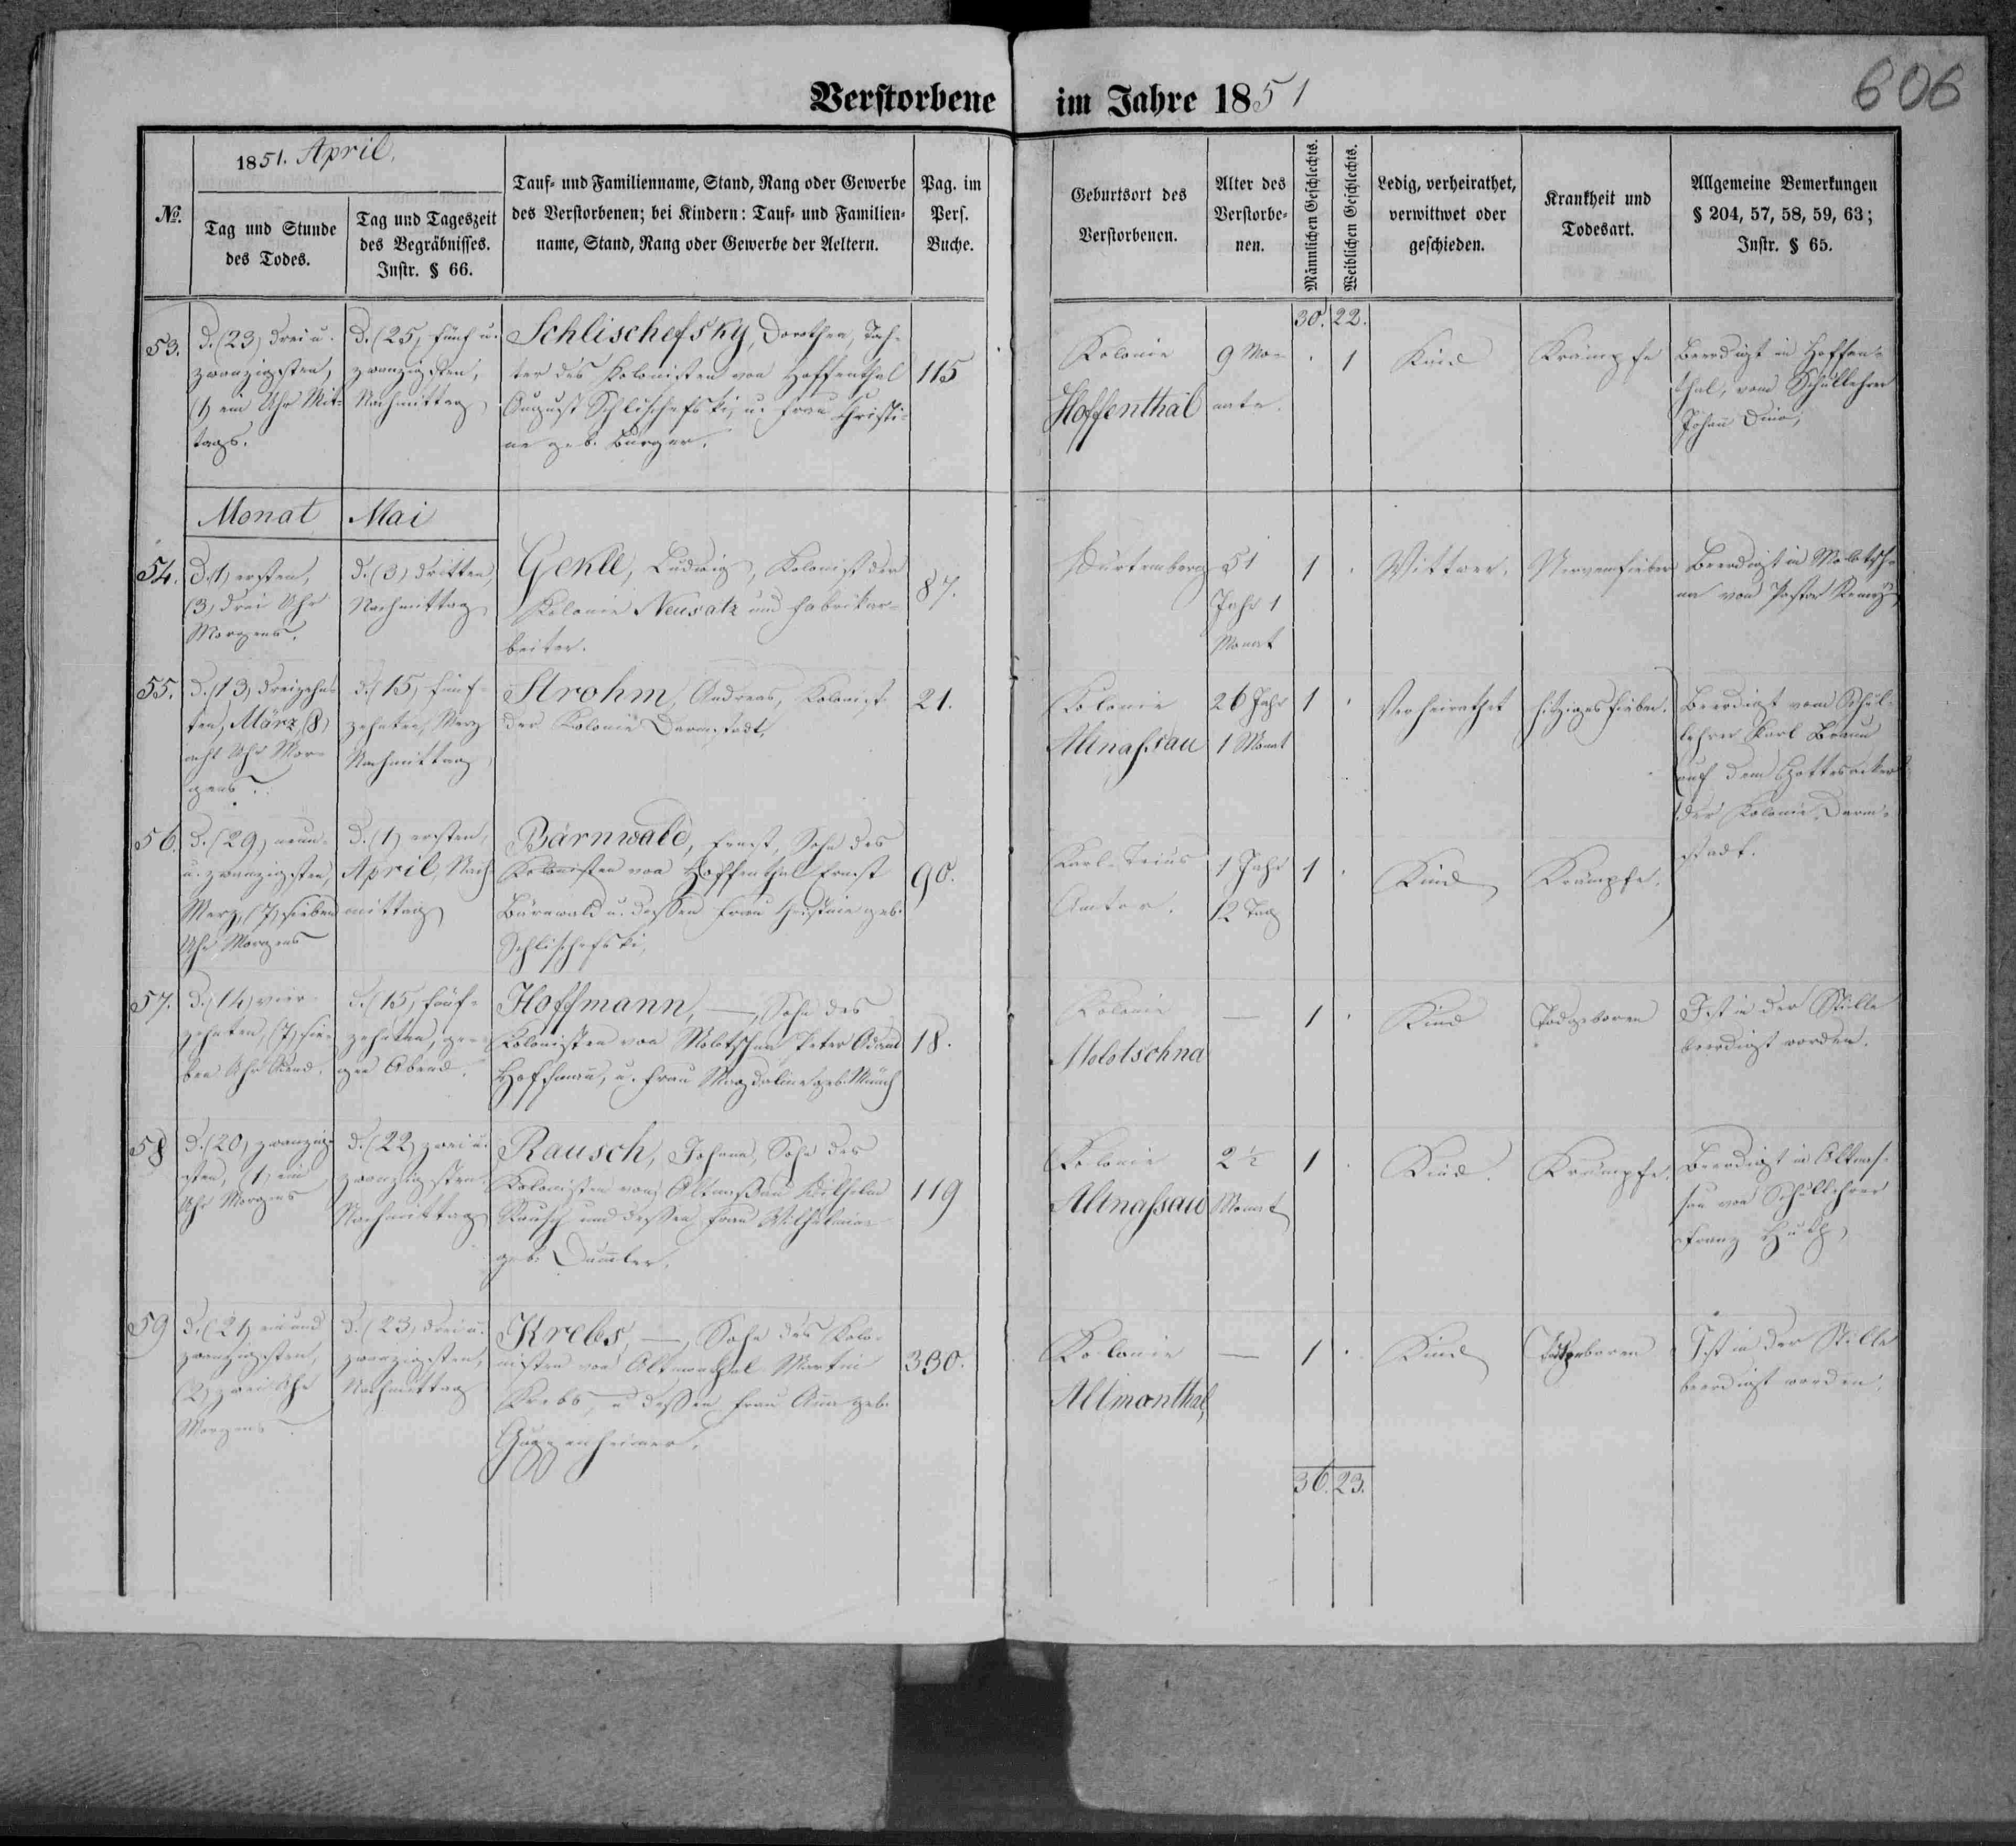 Verstorbene im Jahre 1851
606
1851. April.
№.
Tag und Stunde
des Todes.
Tag und Tageszeit
des Begräbnisses.
Instr. § 66.
Tauf- und Familienname, Stand, Rang oder Gewerbe
des Verstorbenen; bei Kindern: Tauf- und Familien-
name, Stand, Rang oder Gewerbe der Aeltern.
Pag. im
Pers.
Buche.
Geburtsort des
Verstorbenen.
Alter des
Verstorbe-
nen.
Männlichen Geschlechts.
Weiblichen Geschlechts.
Ledig, verheirathet,
verwittwet oder
geschieden.
Krankheit und
Todesart.
Allgemeine Bemerkungen
§ 204, 57, 58, 59, 63;
Instr. § 65.
30. 22.
53.
d. (23) drei u.
zwanzigsten,
(1) ein Uhr Mit-
tags.
d. (25) fünf u.
zwanzigsten,
Nachmittag
Schlischefsky, Dorothea, Toch-
ter des Kolonisten von Hoffenthal
August Schlischefski, u. Frau Christi-
ne geb. Burger.
115
Kolonie
Hoffenthal
9 Mo-
nate.
1
Kind
Krämpfe
Beerdigt in Hoffen-
thal, vom Schullehrer
Johann
Monat Mai
54.
d. (1) ersten,
(3) drei Uhr
Morgens.
d. (3) dritten,
Nachmittag
Genkl, Ludwig, Kolonist der
Kolonie Neusatz und Fabrikar-
beiter.
87.
Würtemberg
51
Jahr 1
Monat
1
Wittwer.
Nervenfieber
Beerdigt in Molotsch-
na von Pastor
55.
d. (13) dreizehn-
ten, März, (8)
acht Uhr Mor-
gens.
d. (15) fünf-
zehnten, Merz
Nachmittag
Strohm, Andreas, Kolonist
der Kolonie Darmstadt.
21.
Kolonie
Altnassau
26 Jahr
1 Monat
1
Verheirathet
hitziges Fieber.
Beerdigt vom Schul-
lehrer Karl Braun
auf dem Gottesacker
der Kolonie Darm-
stadt.
56.
d. (29) neun-
u. zwanzigsten,
Merz, (7) sieben
Uhr Morgens
d. (1) ersten,
April, Nach-
mittag
Bärnwald, Ernst, Sohn des
Kolonisten von Hoffenthal Ernst
Bärnwald u. dessen Frau Christine geb.
Schlischefski,
90.
1 Jahr
12 Tag
1
Kind
Krämpfe.
57.
d. (14) vier-
zehnten, (7) sie-
ben Uhr Abend.
d. (15) fünf-
zehnten, ge-
gen Abend.
Hoffmann, —, Sohn des
Kolonisten von Molotschna Peter Adam
Hoffmann, u. Frau Magdaline geb. Münch
18.
Kolonie
Molotschna
—
1
Kind
Todgeboren
Ist in der Stille
beerdigt worden.
58
d. (20) zwanzig-
sten, (1) ein
Uhr Morgens
d. (22) zwei u.
zwanzigsten
Nachmittag
Rausch, Johann, Sohn des
Kolonisten von Altnassau Wilhelm
Rausch und dessen Frau Wilhelmine
geb. Dummler.
119
Kolonie
Altnassau
2 ½
Monat
1
Kind.
Krämpfe.
Beerdigt in Altnas-
sau von Schullehrer
Franz
59
d. (21) ein und
zwanzigsten,
(2) zwei Uhr
Morgens
d. (23) drei u.
zwanzigsten,
Nachmittag
Krebs, —, Sohn des Kolo-
nisten von Altmonthal Martin
Krebs, u. dessen Frau Anna geb.
Guggenheimer.
330.
Kolonie
Altmonthal,
—
1
Kind
Todtgeboren
Ist in der Stille
beerdigt worden.
36. 23.